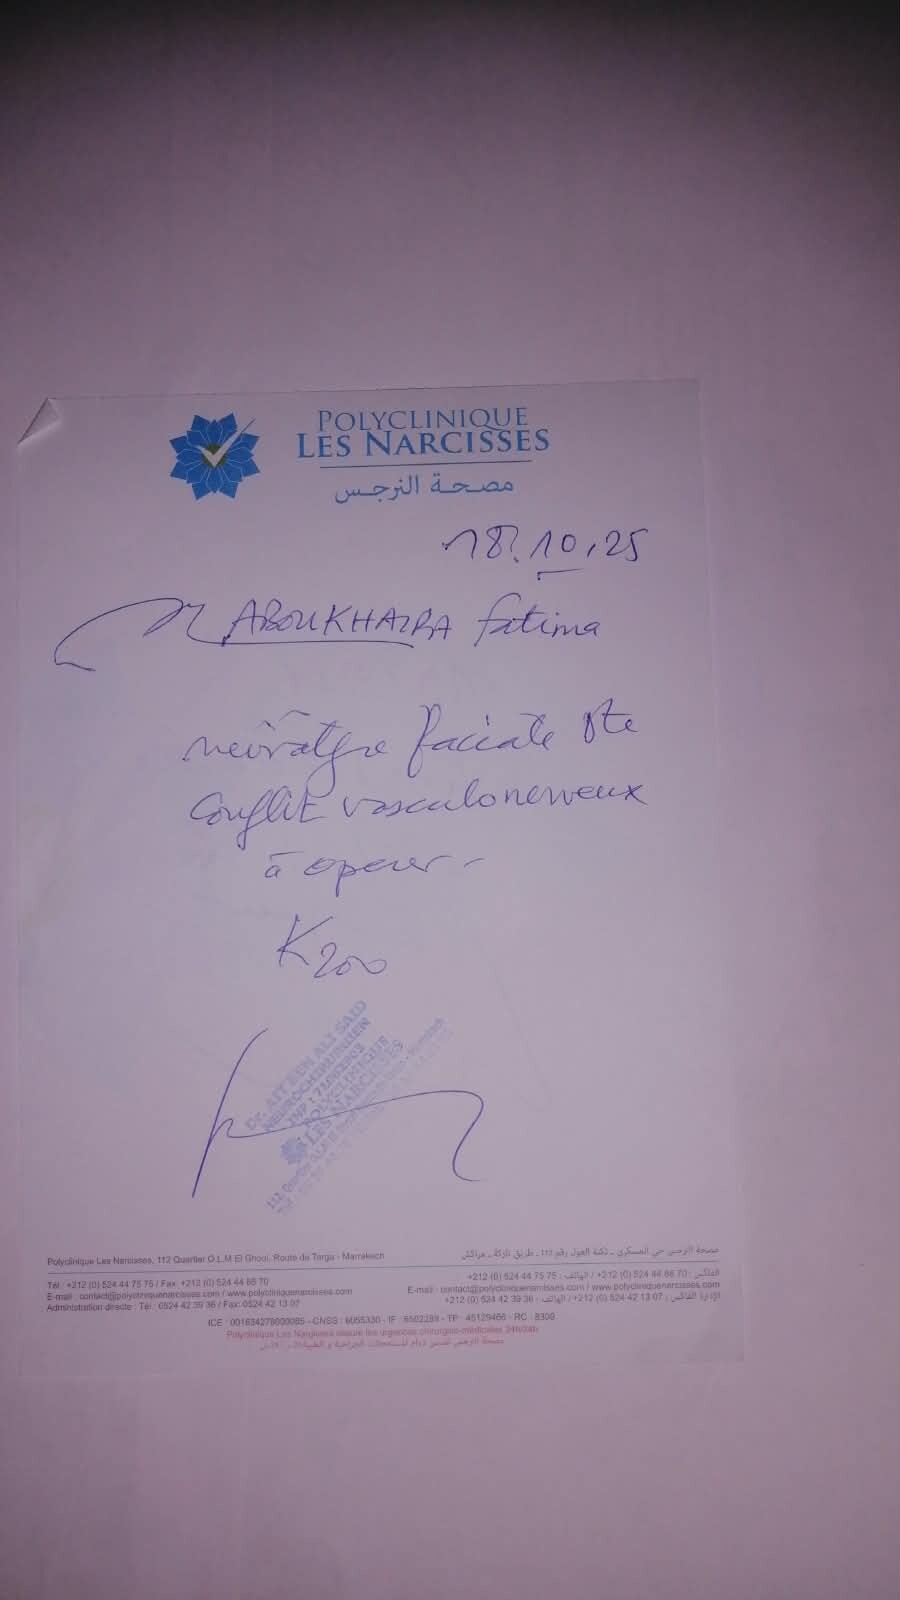 POLYCLINIQUE
LES NARCISSES
مصحة النرجس
18.10.25
ABOUKHAIRA Fatima
névralgie faciale Dte
conflit vasculonerveux
à operer -
K200
Dr. AIT BEN ALI SAID
NEUROCHIRURGIEN
INP :
POLYCLINIQUE
LES NARCISSES
Polyclinique Les Narcisses, 112 Quartier O.L.M El Ghoul, Route de Targa - Marrakech
Tél : +212 (0) 524 44 75 75 / Fax: +212 (0) 524 44 86 70
E-mail : contact@polycliniquenarcisses.com / www.polycliniquenarcisses.com
Administration directe : Tél : 0524 42 39 36 / Fax: 0524 42 13 07
الهاتف : +212 (0) 524 44 75 75 / الفاكس : +212 (0) 524 44 86 70
E-mail : contact@polycliniquenarcisses.com / www.polycliniquenarcisses.com
الهاتف : +212 (0) 524 42 39 36 / الإدارة الفاكس : +212 (0) 524 42 13 07
ICE : 001634278000085 - CNSS : 6055330 - IF : 6502289 - TP : 45129466 - RC : 8309
Polyclinique Les Narcisses assure les urgences chirurgico-médicales 24h/24h